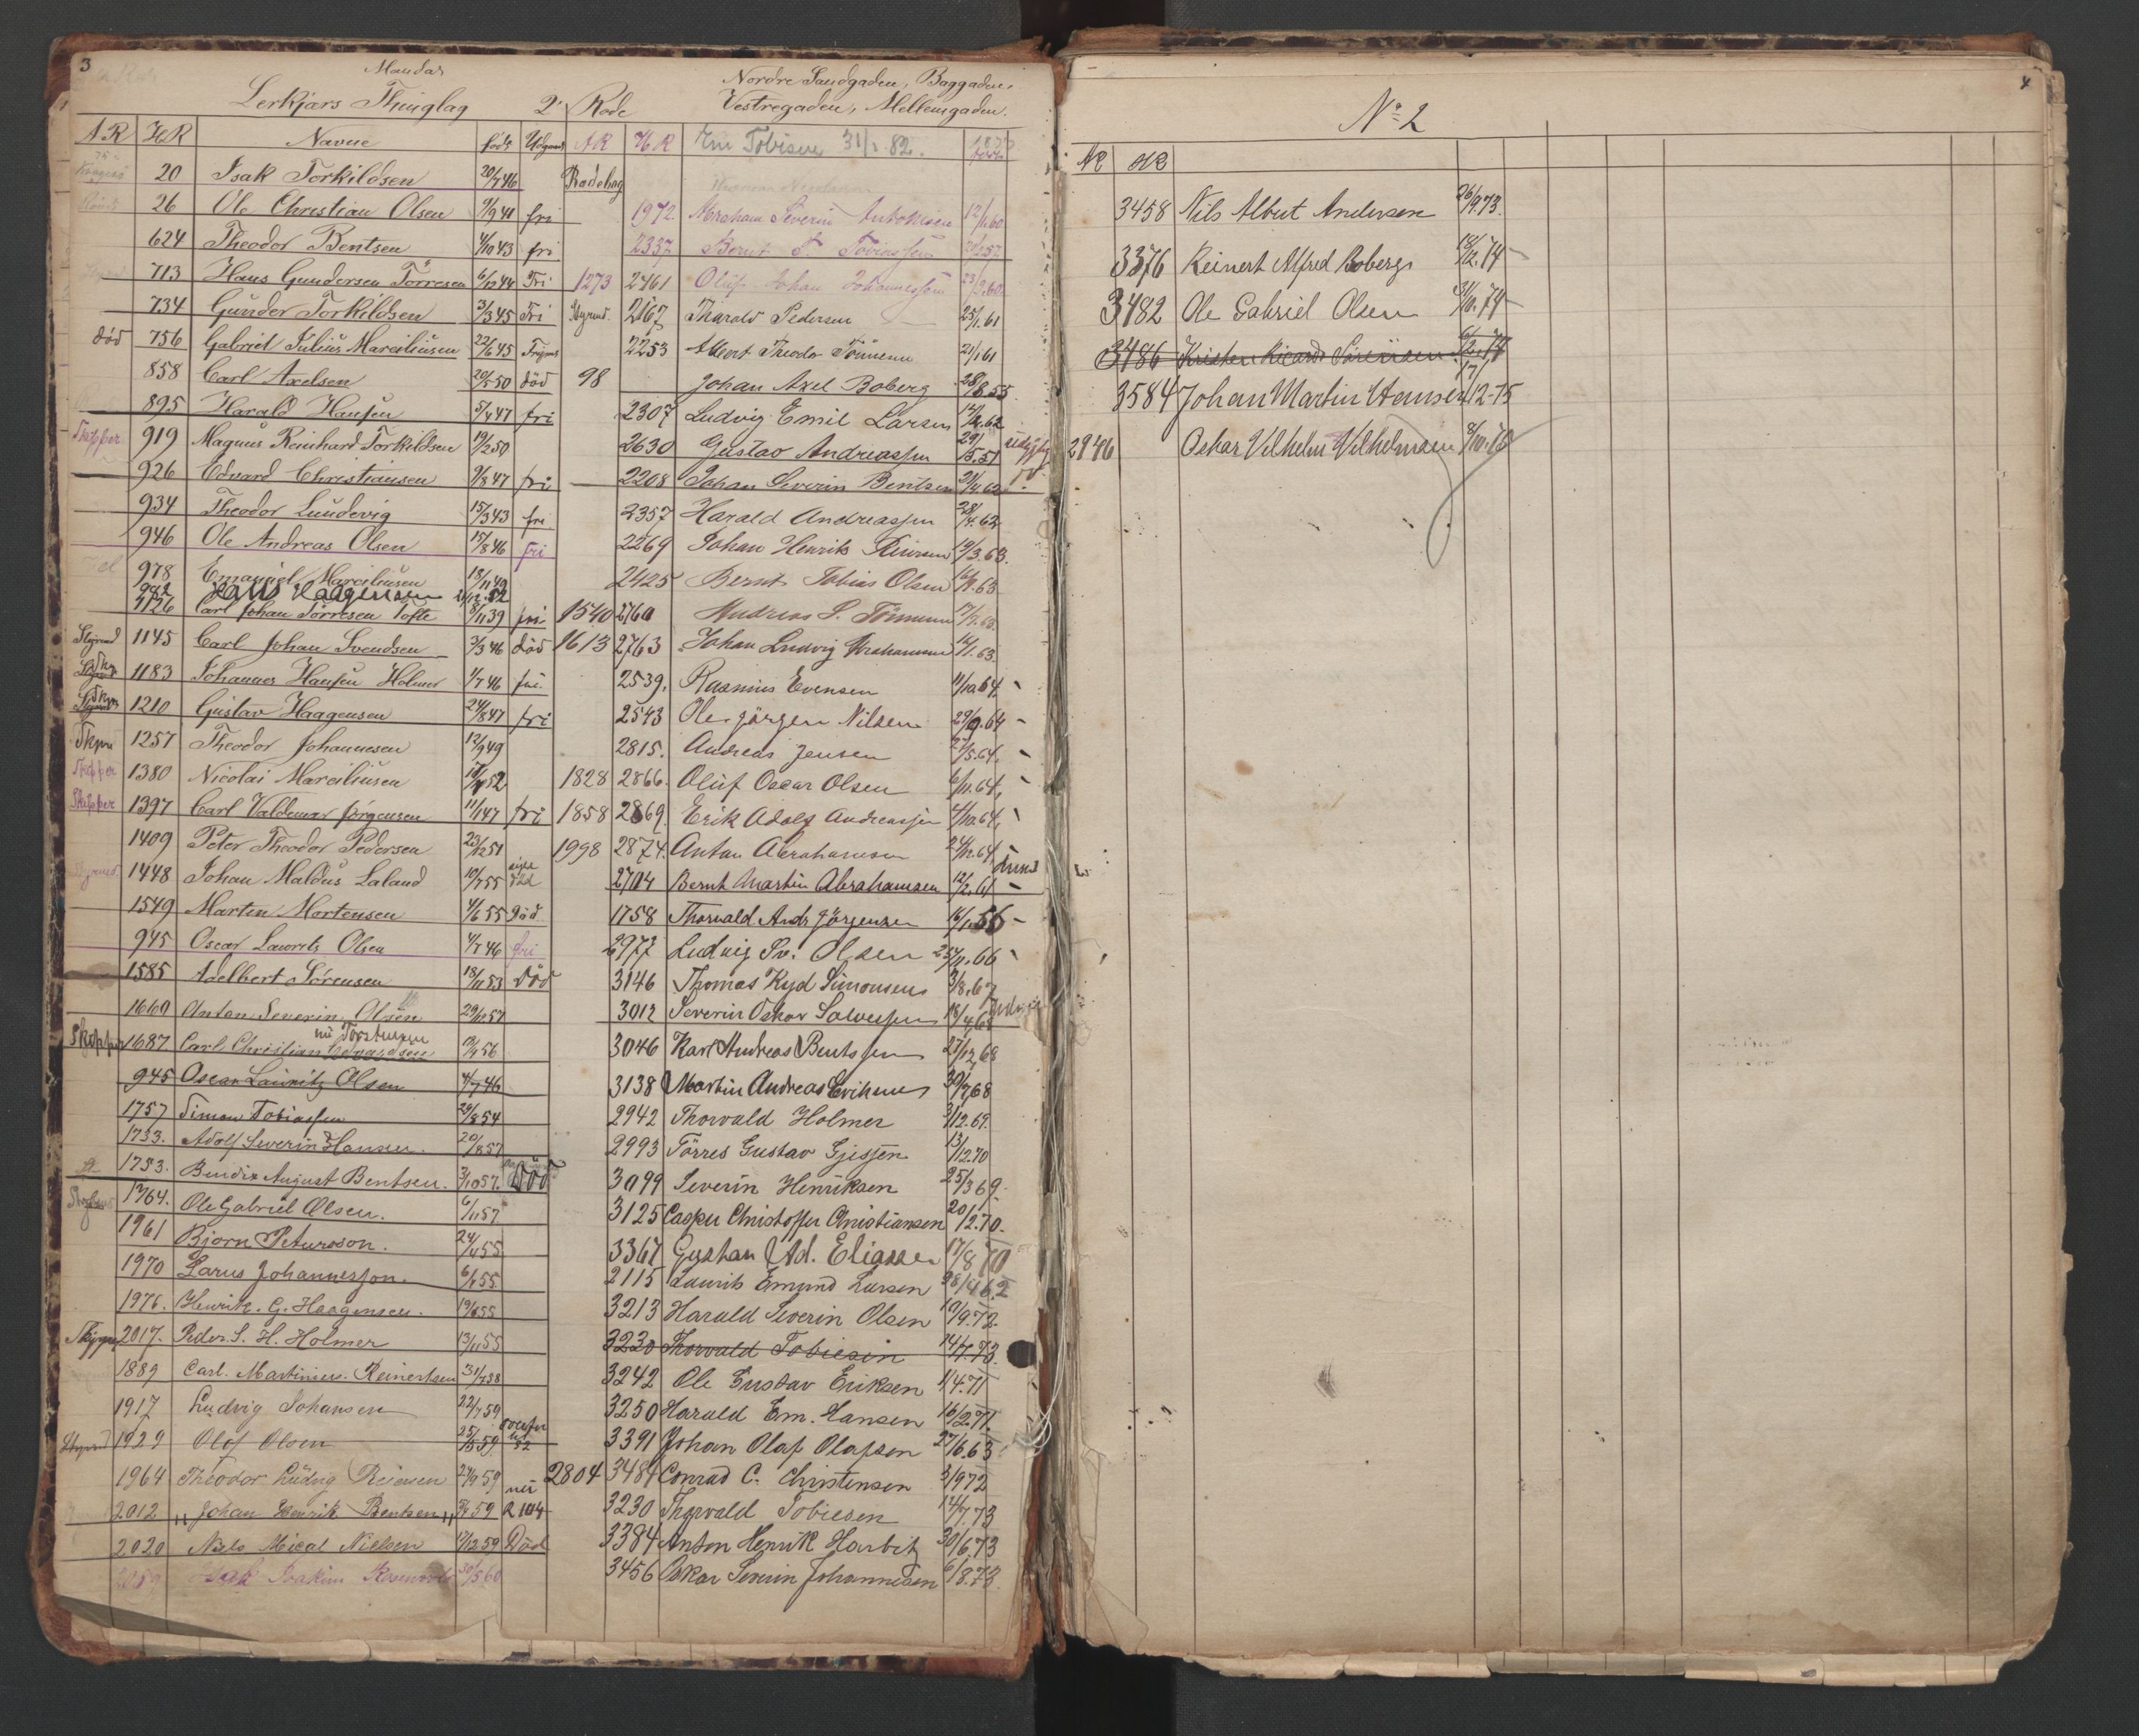 3
Mandal
Lerkjærs Thinglag 2' Rode
Nordre Sandgaden, Baggaden,
Vestregaden, Mellemgaden.
A.R H.R Navne født Udgaaet
20 Isak Torkildsen 20/7 46
26 Ole Christian Olsen 7/9 41 fri
624 Theodor Bentsen 4/10 43 fri
713 Hans Gundersen Tørresen 6/12 44 Fri
734 Gunder Torkildsen 3/3 45 Fri
død 756 Gabriel Julius Marciliusen 22/6 45
858 Carl Axelsen 20/5 50 død
895 Harald Hansen 5/4 47 fri
Skipper 919 Magnus Reinhard Torkildsen 19/2 50
926 Edvard Christiansen 9/8 47 fri
934 Theodor Lundevig 15/3 43 fri
946 Ole Andreas Olsen 15/8 46 fri
978 Emanuel Marciliusen 18/11 49
992 Hans Haagensen
1126 Carl Johan Tørresen Tofte 8/11 39 fri
Styrmd 1145 Carl Johan Svendsen 3/3 46 død
1183 Johannes Hansen Holmer 1/7 46 fri
1210 Gustav Haagensen 24/8 47 fri
1257 Theodor Johannesen 12/9 49
Skipper 1380 Nicolai Marciliusen
Skipper 1397 Carl Valdemar Jørgensen 11/1 47 fri
1409 Peter Theodor Pedersen 23/12 51
1448 Johan Maldus Laland 10/7 55
1549 Martin Mortensen 4/6 55 død
945 Oscar Lauritz Olsen 4/7 46 fri
1585 Adelbert Sørensen 18/11 53 død
1660 Anton Severin Olsen
Skipper 1687 Carl Christian nu Torstensen
945 Oscar Lauritz Olsen 4/7 46
1757 Simon Tobiassen 29/8 54
1733. Adolf Severin Hansen. 20/8 57
1753. Bendix August Bentsen. 3/10 57. Død
1764. Ole Gabriel Olsen. 6/11 57
1961 Bjørn Petursson.
1970 Larus Johannesson.
1976. Henrik. G. Haagensen. 19/6 55
Skipper 2017. Peder. S. H. Holmer 13/11 55
1889 Carl. Martinius. Reinertsen 31/7 58
1917 Ludvig Johansen 22/7 59
Styrmd 1929 Olof Olsen 25/5 59
1964 Theodor Ludvig Reiersen 24/9 59
2012 „Johan Henrik Bentsen„ 59 2104
2020 Niels Mical Nielsen 17/12 59 Død
AR H.R Em Tobisen 31/1. 82.
1972 Abraham Severin Antonisen 12/1 60
2337 Bernt S. Tobiassen
1273 2461 Oluf Johan Johannessen 23/9. 60
Styrmd. 2167 Tharald Pedersen 25/1. 61
2253 Albert Theodor Tønnesen 21/1 61
98 Johan Axel Boberg 28/8 55
2307 Ludvig Emil Larsen
2630 Gustav Andreassen
2208 Johan Severin Bentsen
2357 Harald Andreassen 28/4. 62
2269 Johan Henrik Reiersen 19/3. 63.
2425 Bernt Tobias Olsen
1540 2760 Andreas S. Tønnesen
1613 2763 Johan Ludvig Abrahamsen
2539. Rasmus Evensen 11/10. 64
2543 Ole Jørgen Nilsen 29/9. 64
2815. Andreas Jensen 27/5. 64,
1828 2866. Oluf Oscar Olsen 6/11. 64,
1858 2869. Erik Adolf Andreassen 4/10. 64,
1998 2874. Anton Abrahamsen
2704 Bernt Martin Abrahamsen
1758 Thorvald Andr Jørgensen
2977 Ludvig Sv. Olsen 66
3146 Thomas Ryd Simonsen 3/8. 67
3012 Severin Oskar Salvesen 18/4. 68
3046 Karl Andreas Bentssen 27/12 68
3138 Martin Andreas Eriksen 30/7 68
2942 Thorvald Holmer 3/12. 69.
2993 Tørres Gustav Gjessen 13/12. 70
3099 Severin Henriksen 25/3 69
3125 Casper Christoffer Christiansen 20/12. 70.
3367 Gustav Ad. Eliassen 17/8 70
2115 Laurits Emund Larsen 28/4 62
3213 Harald Severin Olsen 19/9. 72.
3230 Thorvald Tobiesen 14/7. 73.
3242 Ole Gustav Eriksen 1/4. 71
3250 Harald Em. Hansen 16/2. 71.
3391 Johan Olaf Olafsen 27/6. 63
2804 3484 Conrad C. Christensen 3/9 72
3230 Thorvald Tobiesen 14/7. 73
3384 Anton Henrik Harbitz 30/6. 73
3456 Oskar Severin Johannesen 6/8. 73.
4
No 2
AR HR
3458 Nils Albert Andersen 26/9 73.
3376 Reinert Alfred Boberg 18/12. 74
3482 Ole Gabriel Olsen 31/10. 74
3486 Kristen Ricard Sørensen
3584 Johan Martin Hansen 17/12-75
2946 Oskar Vilhelm Vilhelmsen